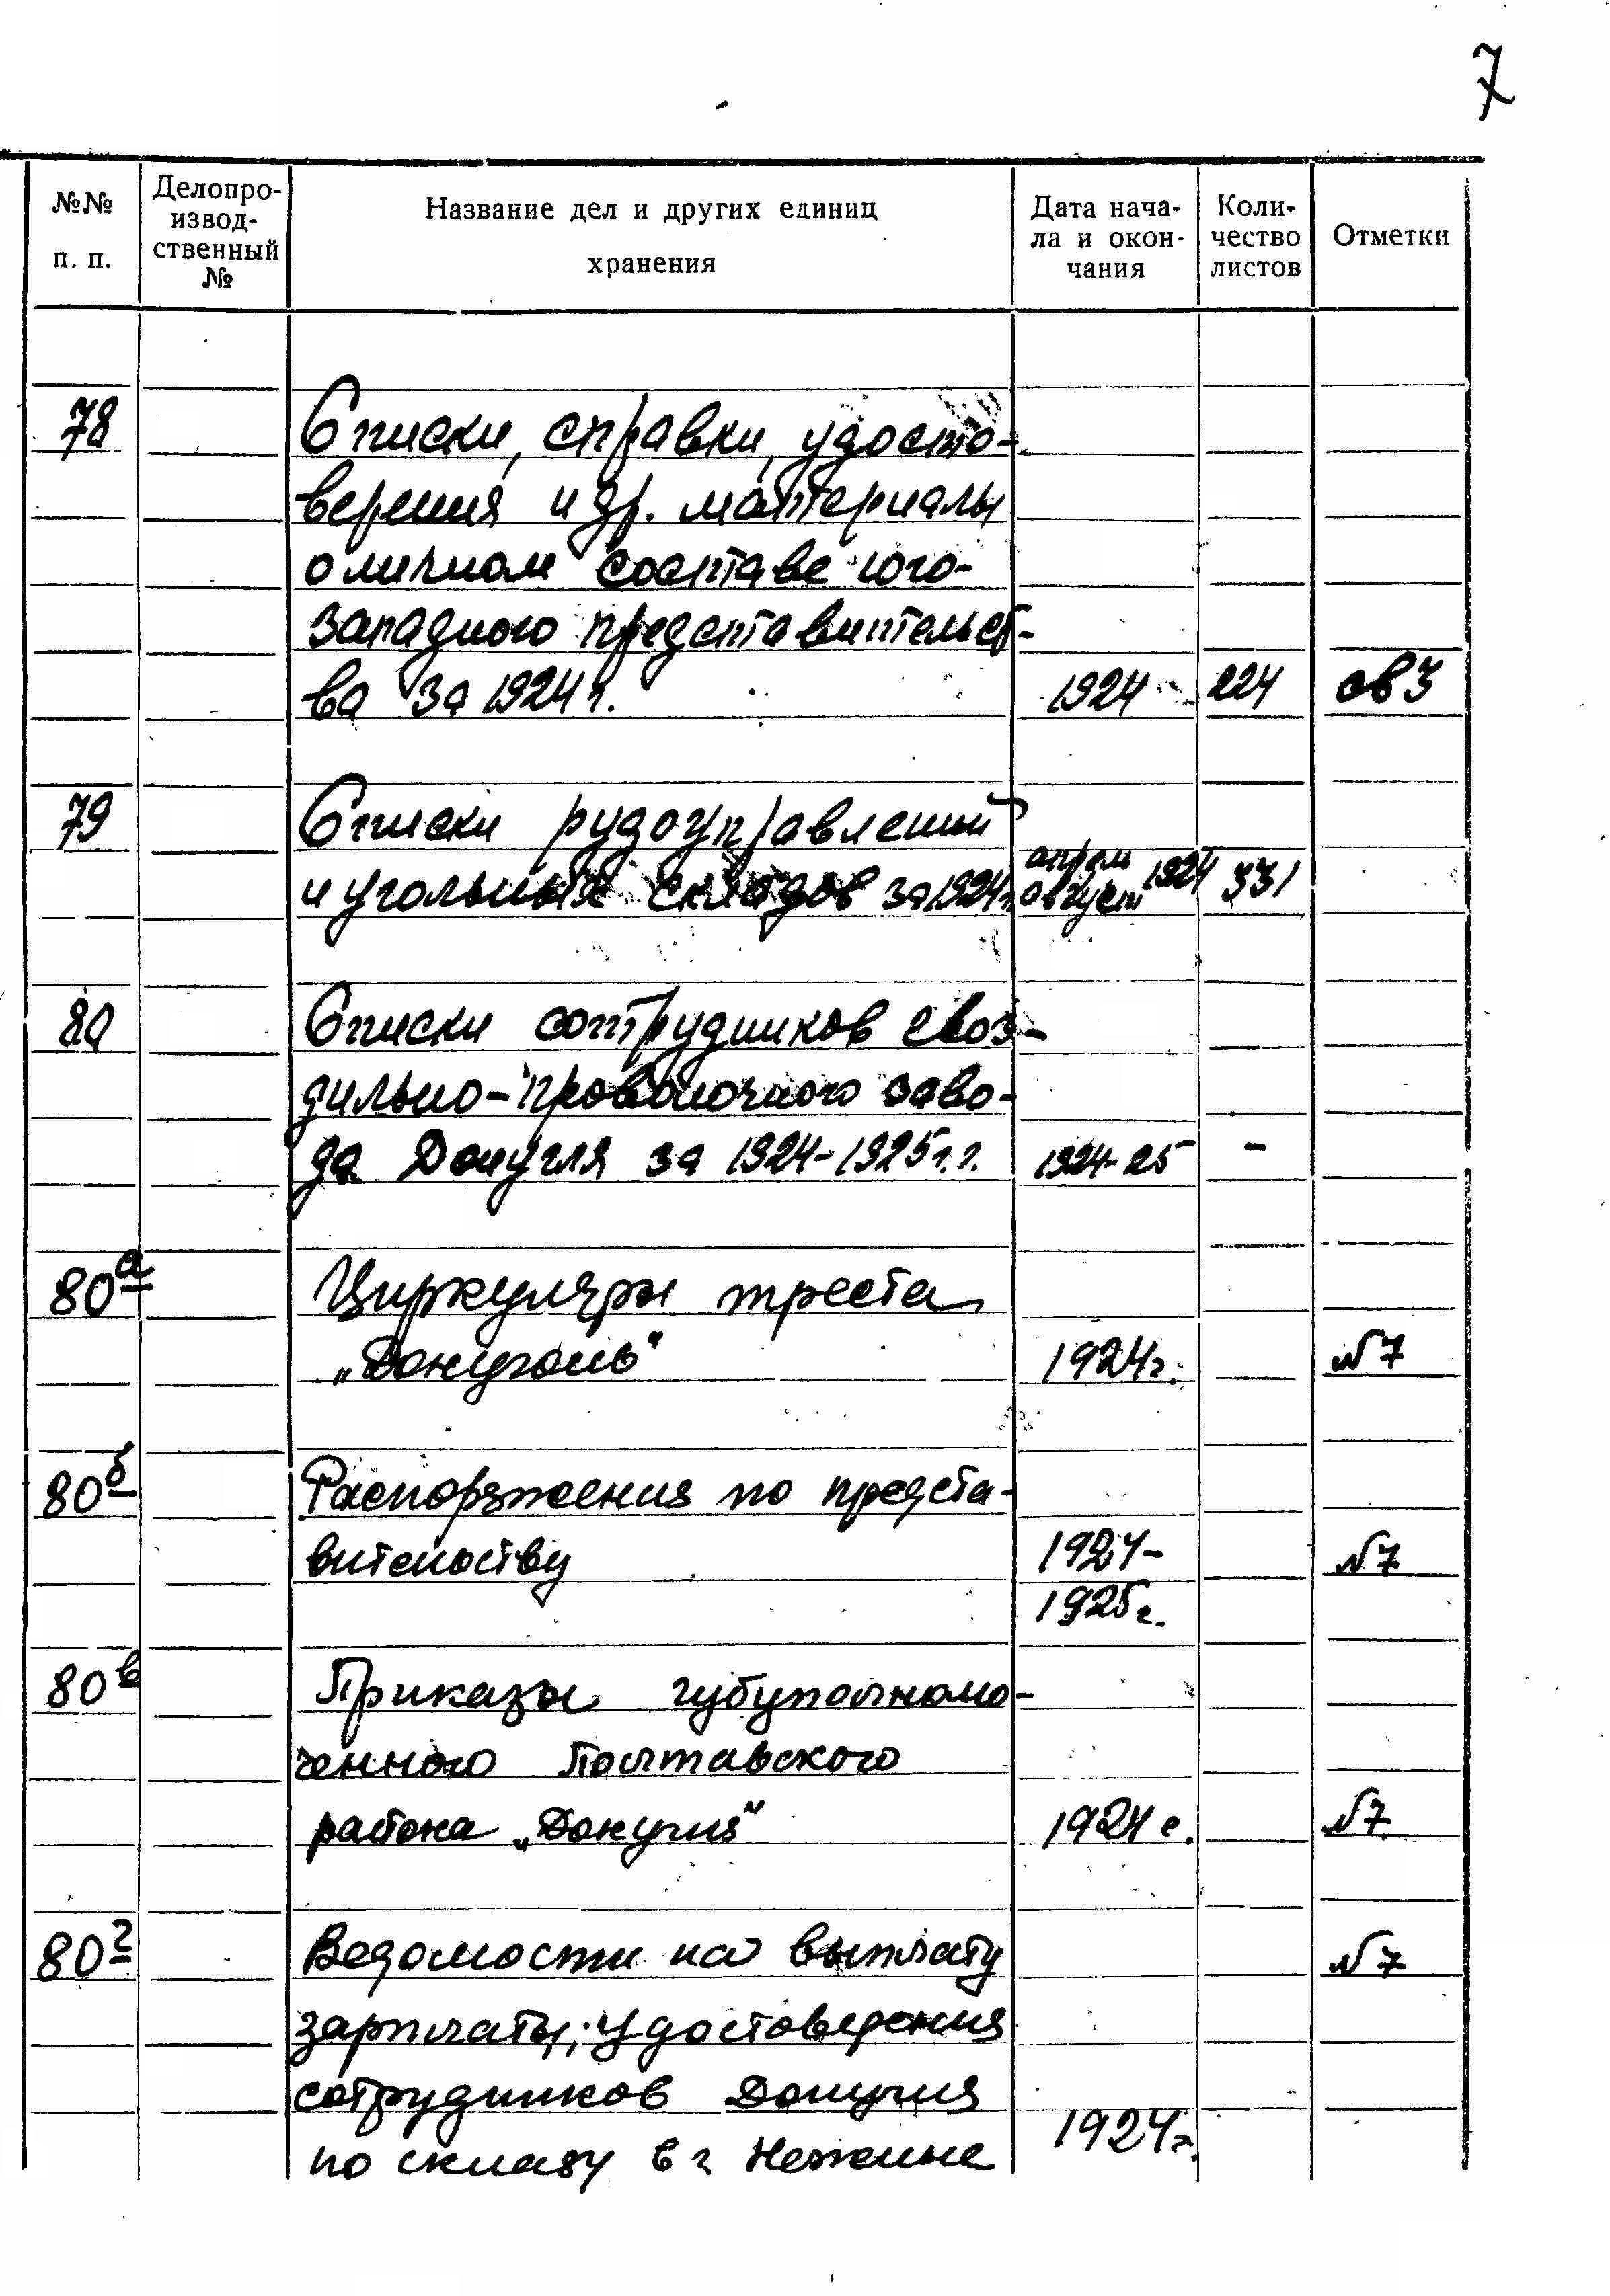 7
№№ п. п.
Делопро-
извод-
ственный
№
Название дел и других единиц
хранения
Дата нача-
ла и окон-
чания
Коли-
чество
листов
Отметки
78 Списки, справки, удосто-
верения и др. материалы
о личном составе юго-
западного представительст-
ва за 1924 г. 1924 224 св 3
79 Списки рудоуправлений
и угольных складов за 1924 г. апрель август 1924 331
80 Списки сотрудников гвоз-
дильно-проволочного заво-
да Донугля за 1924-1925 г.г. 1924-25 -
80а Циркуляры треста
„Донуголь" 1924г. №7
80б Распоряжения по предста-
вительству 1924- №7
1925г.
80в Приказы губуполномо-
ченного Полтавского
района „Донугля" 1924 г. №7
80г Ведомости на выплату №7
зарплаты; удостоверения
сотрудников Донугля
по складу в г. Нежине 1924г.